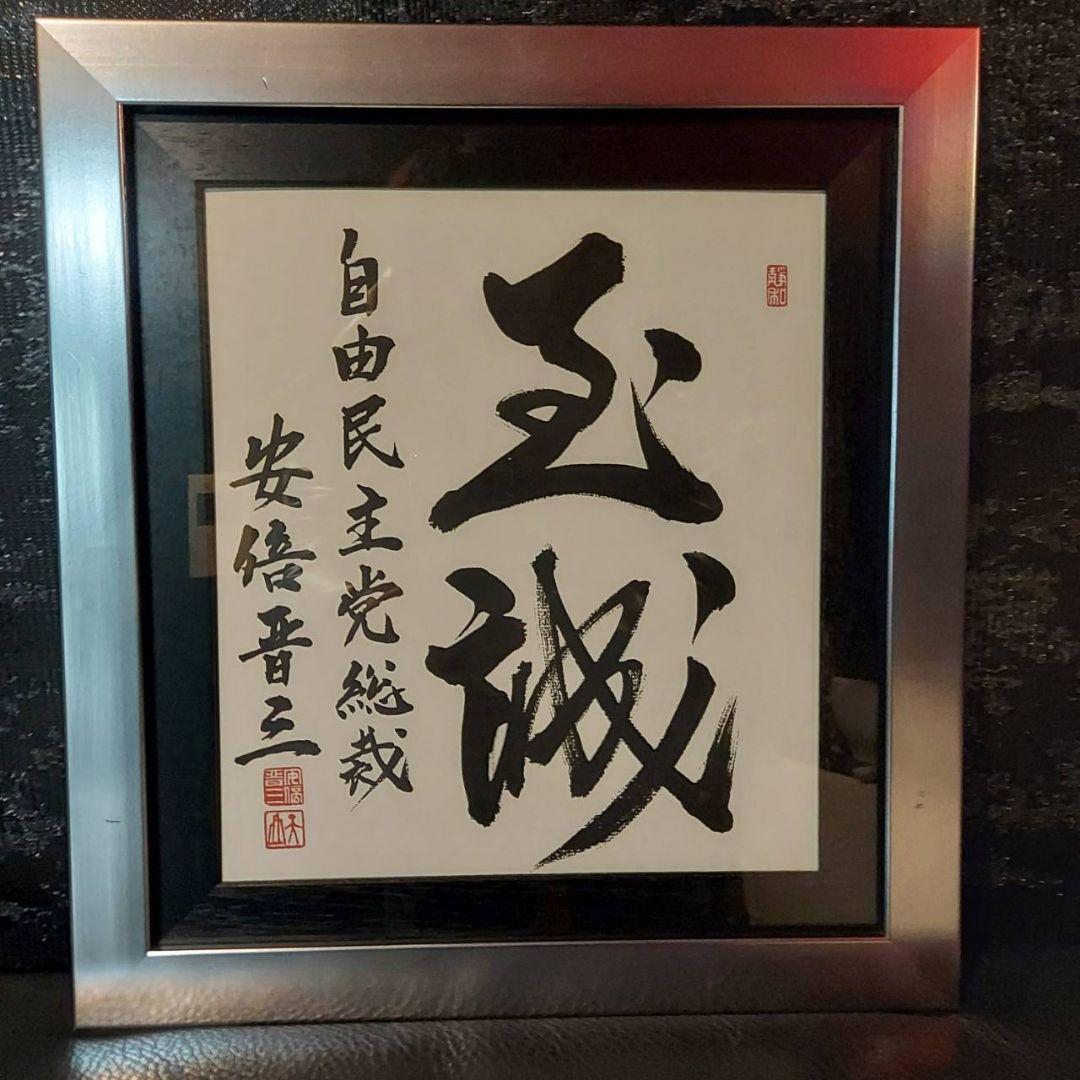 至誠
自由民主党総裁
安倍晋三
静和
安倍晋三